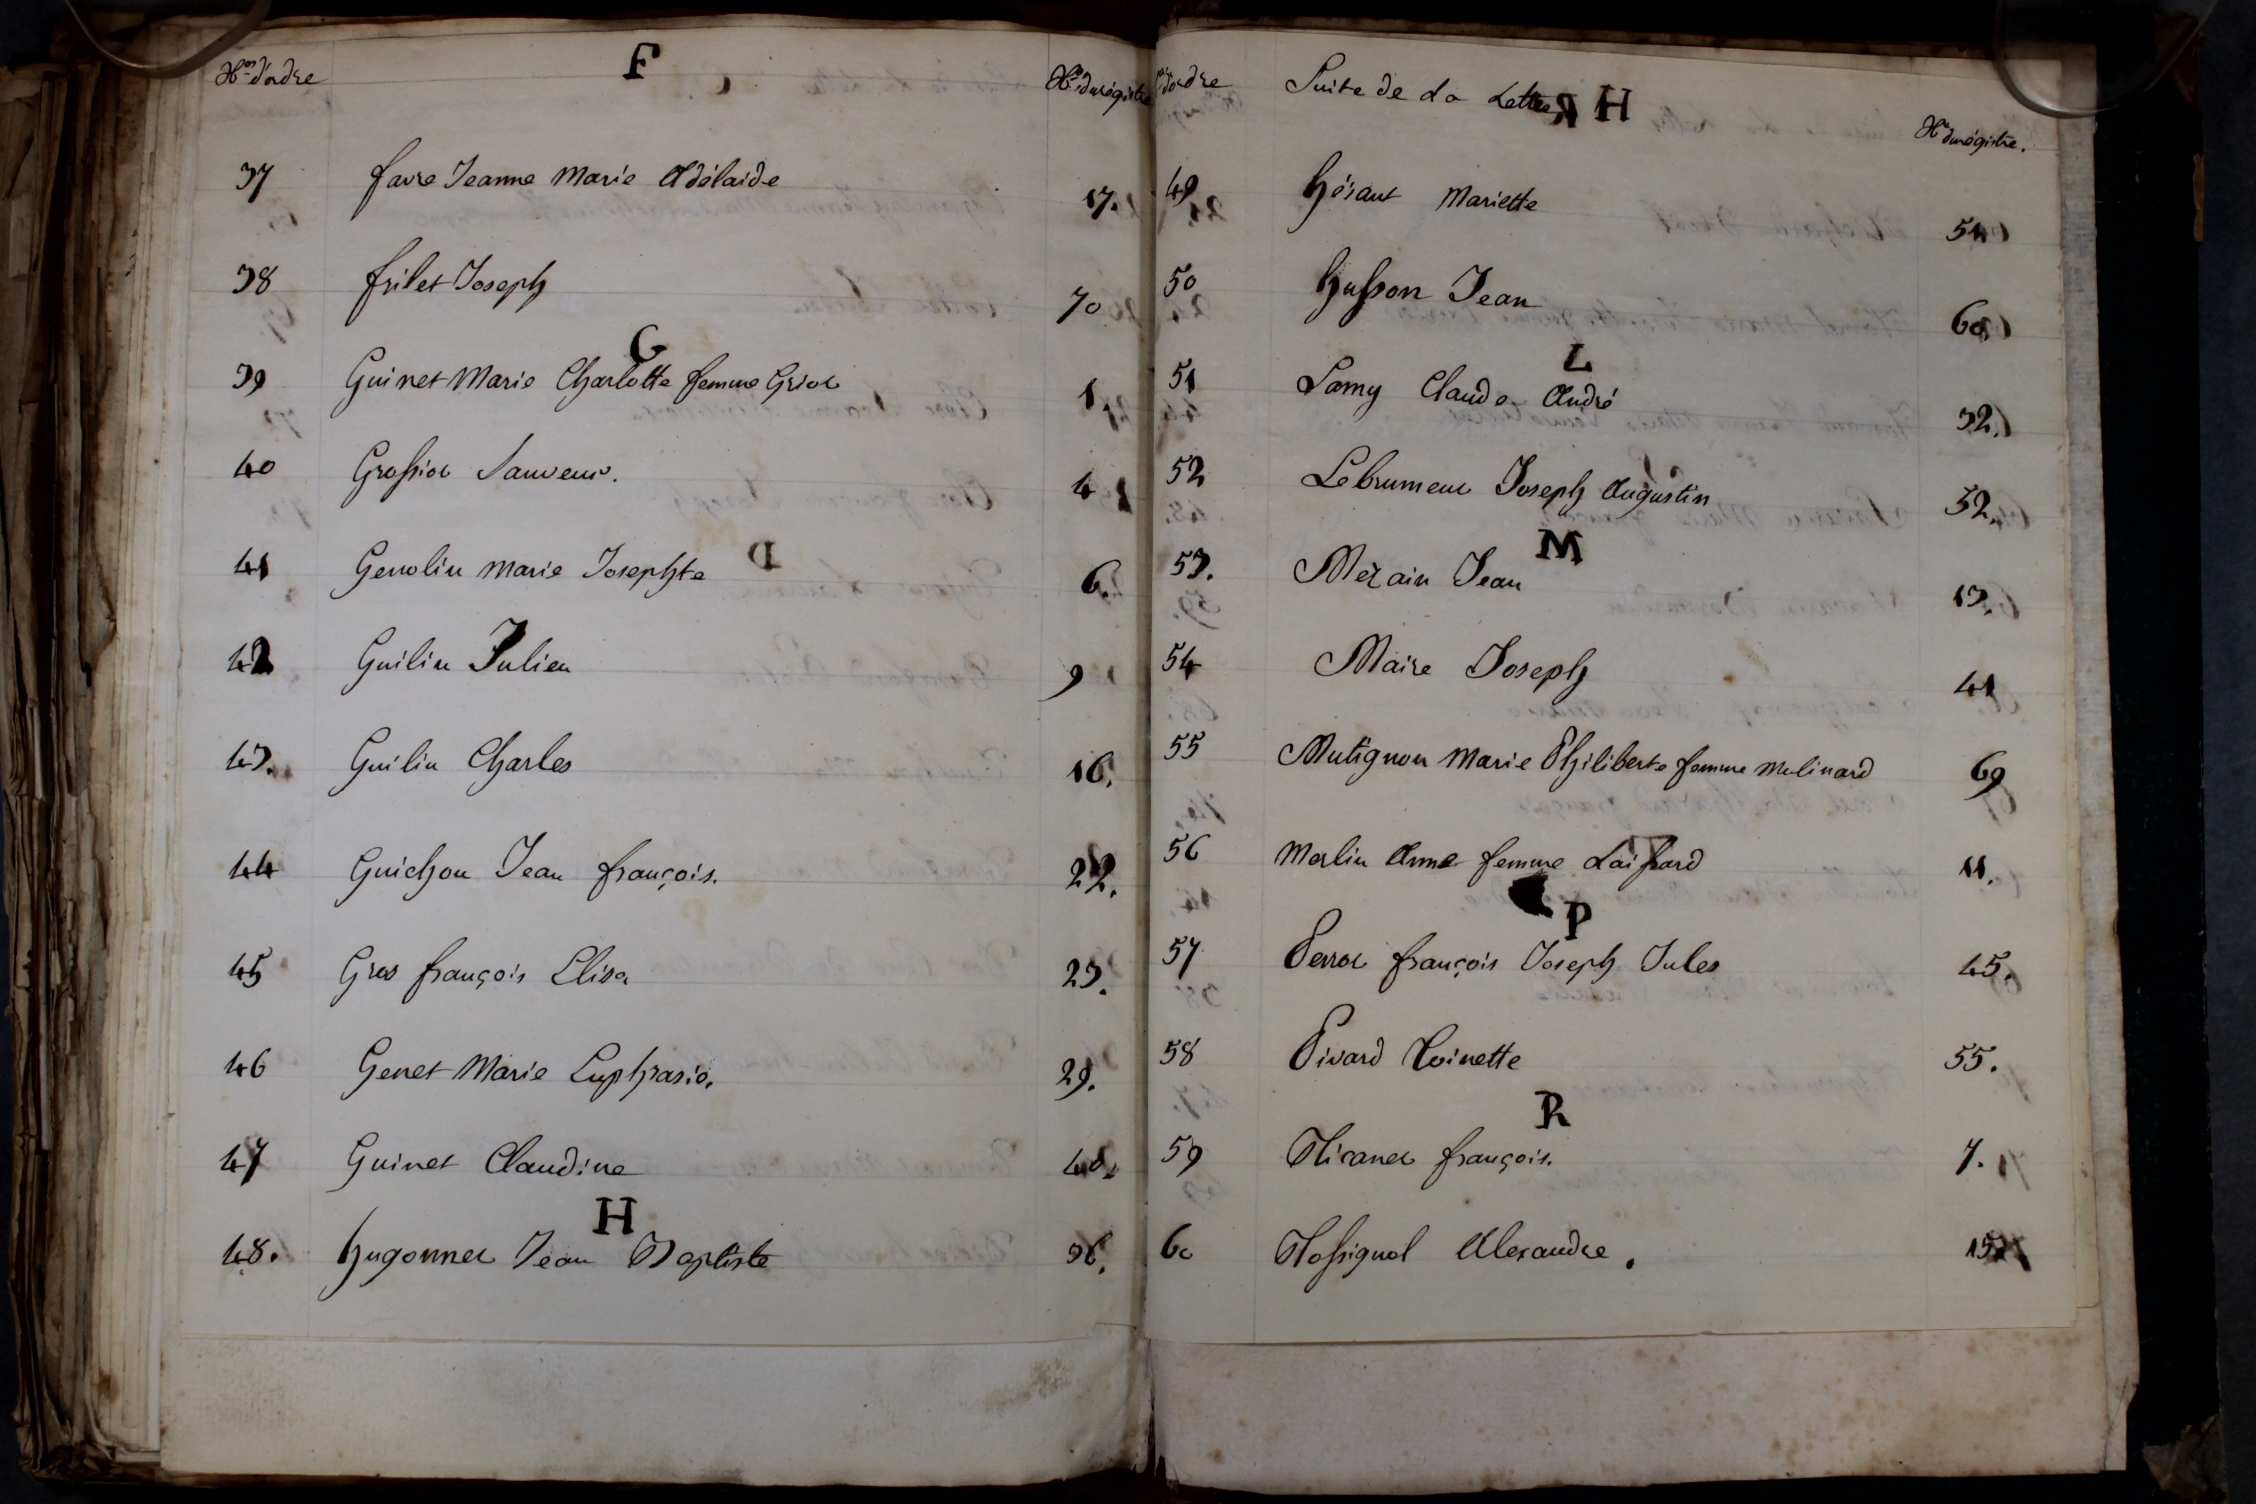 Nos d'ordre
F
No du régistre
37 favre Jeanne Marie Adélaide 17.
38 frilet Joseph 70
G
39 Guinet Marie Charlotte femme Grior 1
40 Grossior Sauveur. 4
41 Genolin marie Josephte 6.
42 Guilin Julien 9
43. Guilin Charles 16.
44 Guichon Jean françois. 22.
45 Gros françois Elisa 23.
46 Genet Marie Euphrasie. 29.
47 Guinet Claudine 48.
H
48. hugonnet Jean Baptiste 36.
d'ordre
Suite de La Lettre H
No du régistre.
49 hérant Mariette 54
50 husson Jean 60
L
51 Lamy Claude André 32.
52 Lebrumeur Joseph Augustin 52.
M
53. Merain Jean 13.
54 Maire Joseph 41
55 Mutignon Marie Philiberte femme Molinard 69
56 Merlin Anne femme Laissard 11.
P
57 Perror françois Joseph Jules 45.
58 Pivard Toinette 55.
R
59 Ricanet françois. 7.
60 Rossignol Alexandre. 15